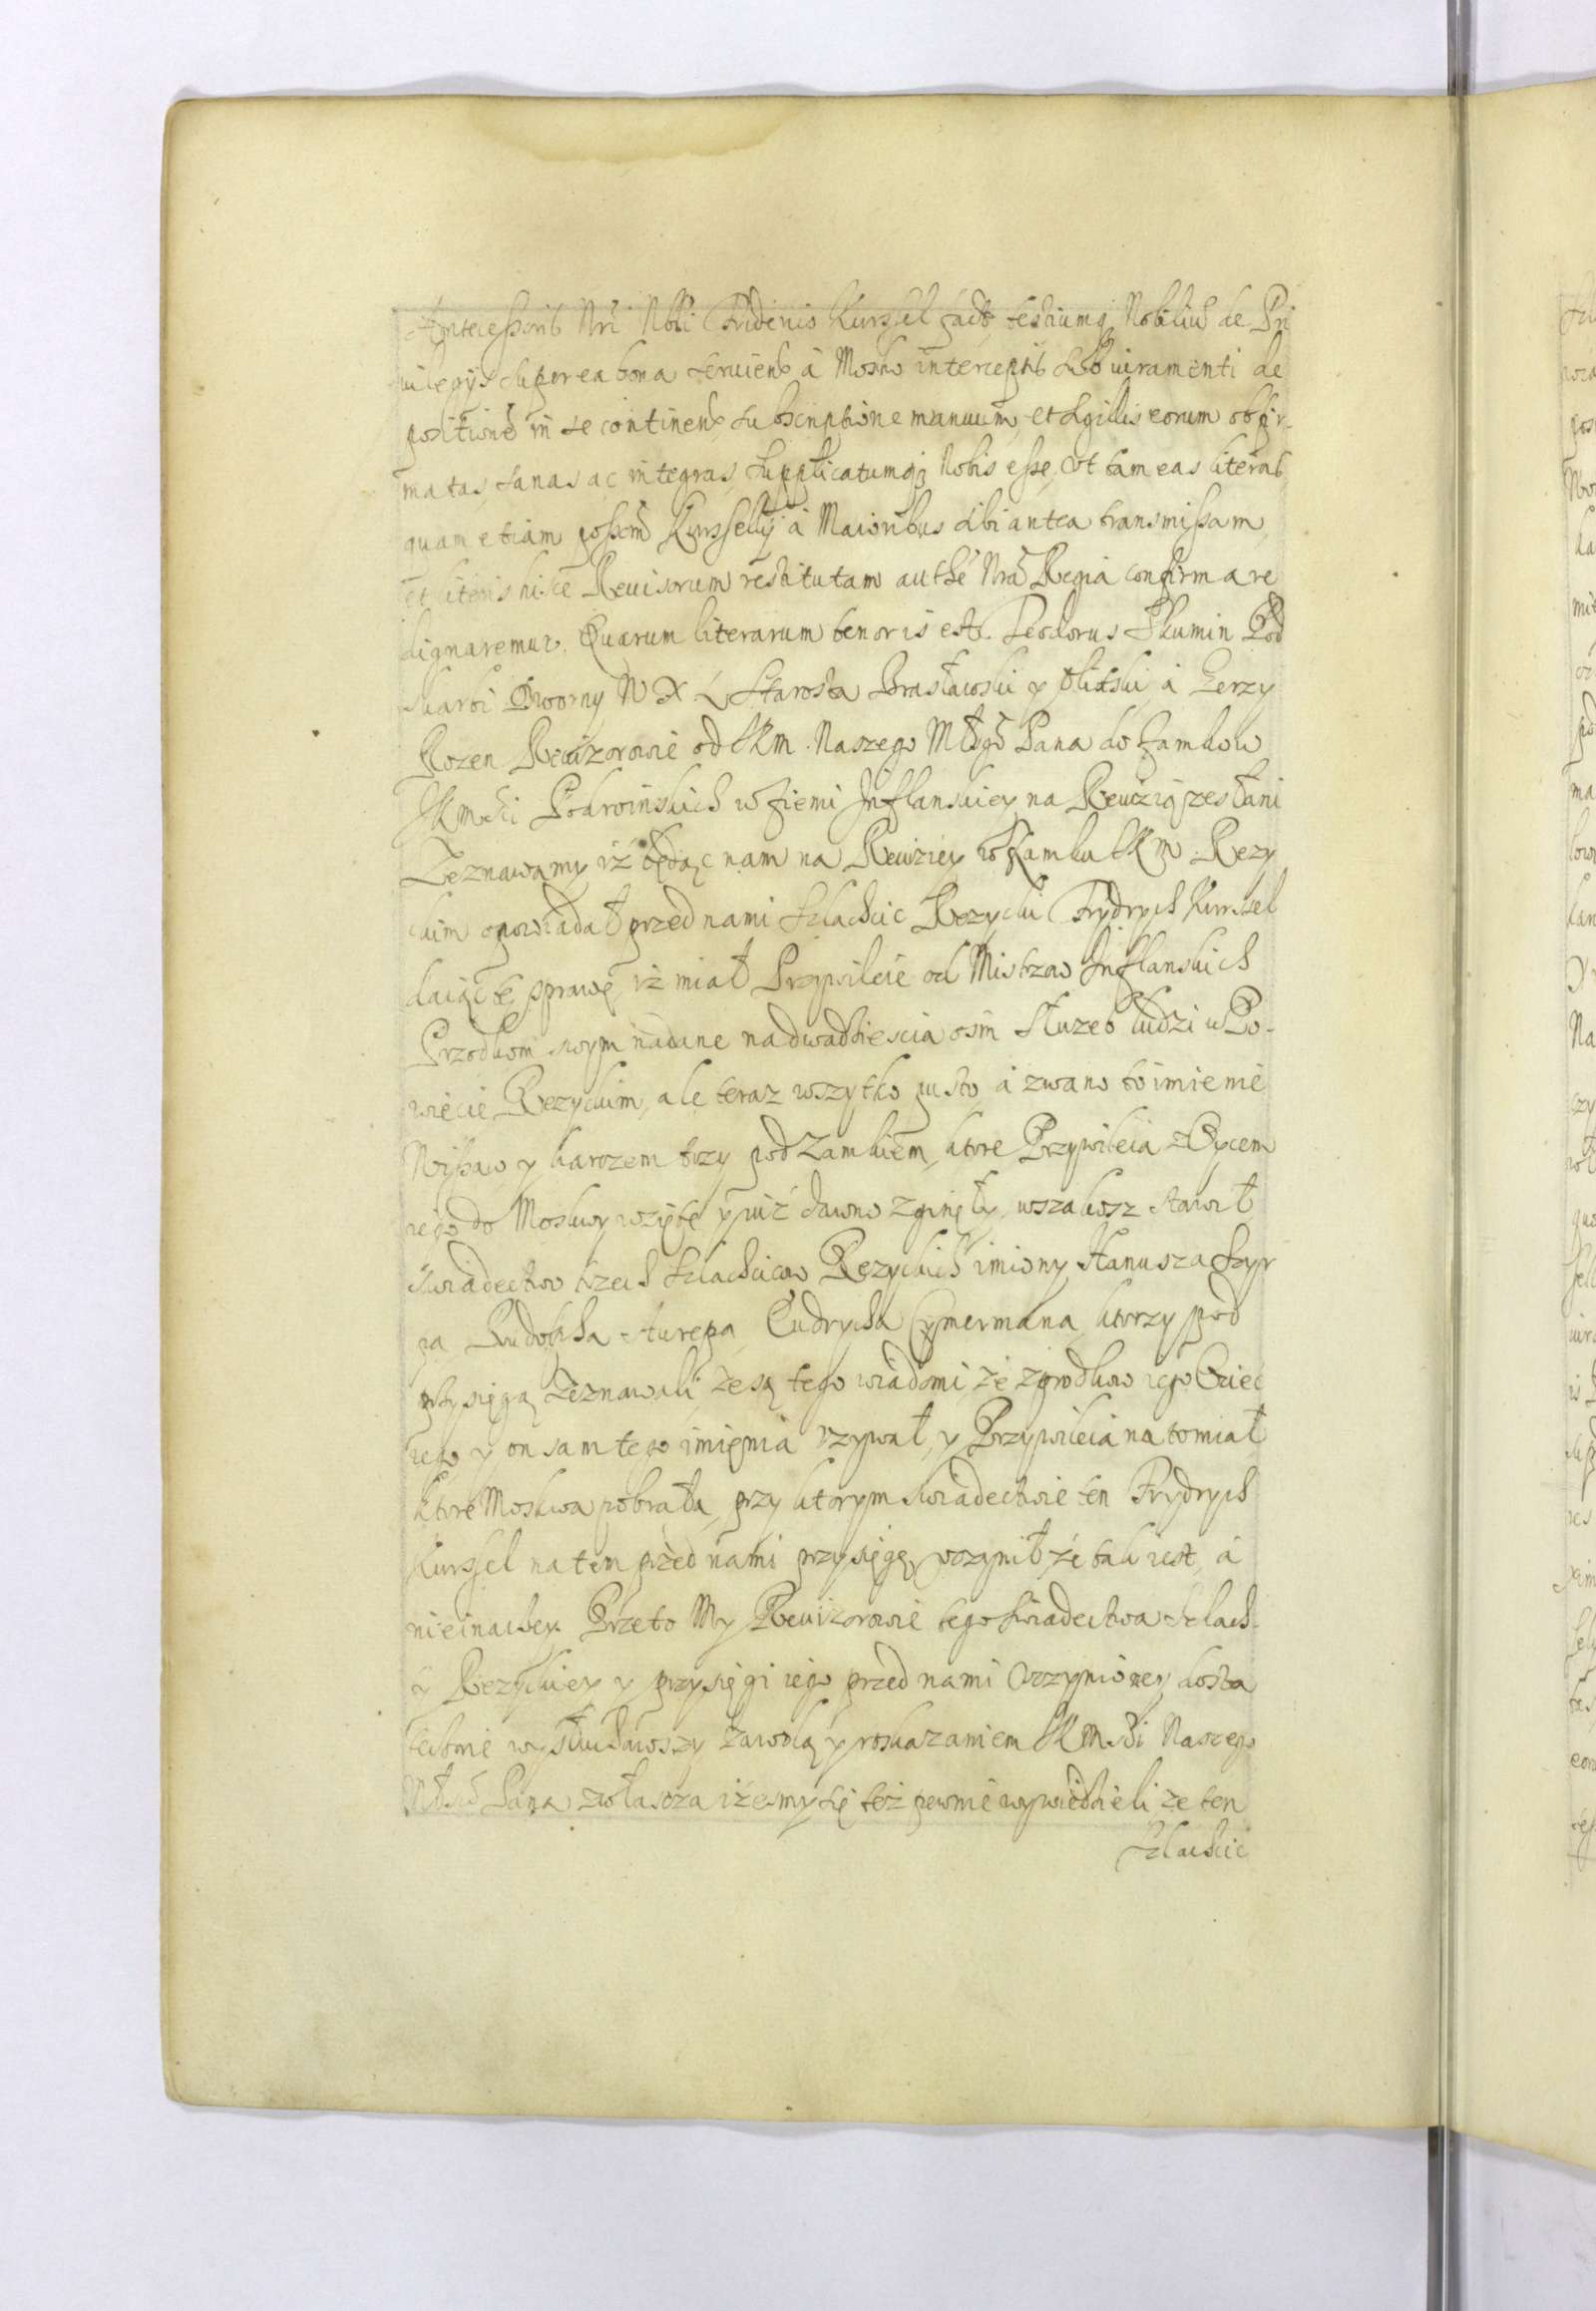 Antecessorib Nri Nobli Fridenio Kurssel factб testiumq Nobiliũ de Pri
vilegijs super ea bona serviend a Mosko interceptib sub iuramenti de
positione in se continend subscriptione manuum, et sigillis eorum obfir-
matas, sanas ac integras, supplicatumq Nobis esse, Ut tam eas literas,
quam etiam possess Kursselij a Maioribus sibi antea transmissam,
et literis hisce Revisorum restitutam authe Nra Regia confirmare
dignaremur. Quarum literarum tenor is est. Teodorus Skumin Pod
skarbi Dworny W X L Starosta Brasławski y Olitski, a Jerzy
Rozen Rewizorowie od JKM. Naszego Młsgo Pana do Zamkow
JKMsci Podzwinskich w Ziemi Inflanskiey na Rewizią zesłani
Zeznawamy iż będąc nam na Rewiziey w Zamku JKM Rezy
ckim opowiadał przed nami Szlachcic Rezycki Frydrych Kurssel
daiąc tę sprawę, iż miał Przywileie od Mistrzow Inflanskich
Przodkom swym nadane na dwadziescia osm Służeb ludzi w Po-
wiecie Rezyckim, ale teraz wszytko pusto, a zwano to imienie
Nissaw y karozem trzy pod Zamkiem, ktore Przywileia z Oycem
iego do Moskwy wzięte y iuż dawno zginęły, wszakosz stawił
swiadectwo trzech Szlachcicow Rezyckich imiony Hanusza Szyr
pa Rudolfha Aurepa, Ludrycha Cymermana, ktorzy pod
przysięgą Zeznawali, że są tego wiadomi, że z przodkow iego Ociec
iego y on sam tego imienia używał, y Przywileia na to miał
ktore Moskwa pobrała, przy ktorym swiadectwie ten Frydrych
Kurssel na tem przed nami przysięgę uczynił że tak iest, a
nieinaczey. Przeto My Rewizorowie tego swiadectwa Szlach-
cy Rezyckiey y przysięgi iego przed nami Uczynioney dosta
tecznie wysłuchawszy za wolą y roskazaniem JKMsci Naszego
Młsgo Pana zwłascza iżesmy się też pewnie wywiedzieli że ten
Szlachcic